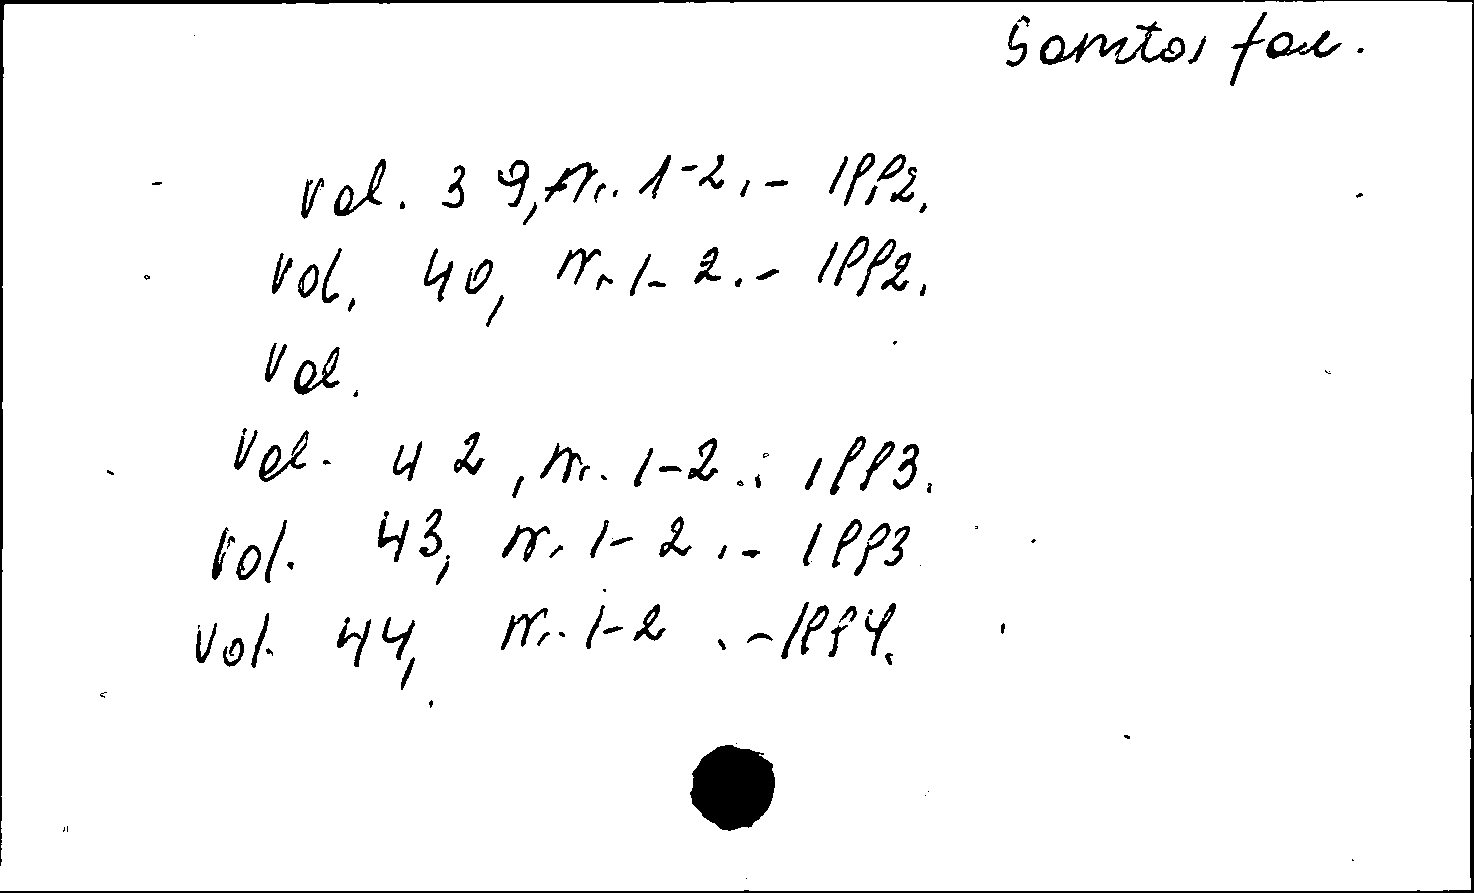 Somtos fac.
vol. 39, nr. 1-2. - 1992.
vol. 40, nr. 1-2. - 1992.
Vol.
Vol. 42, nr. 1-2. - 1993.
Vol. 43, nr. 1-2. - 1993
Vol. 44, nr. 1-2. - 1994.